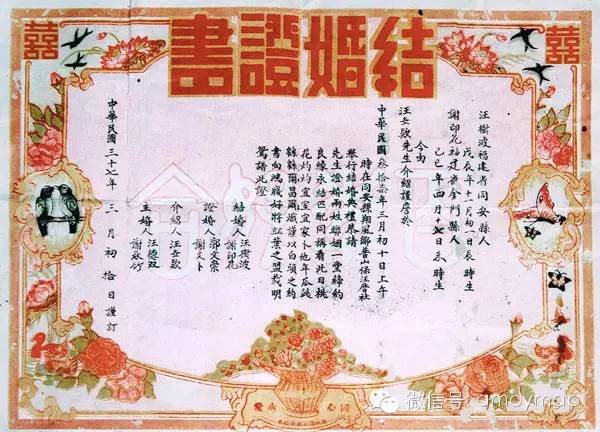 囍 結婚證書 囍
汪樹波福建省同安縣人
戊辰年十一月初一日辰時生
謝印花福建省金門縣人
己巳年四月十七日未時生
今由
汪 欽先生介紹謹詹於
中華民國叁拾柒年三月初十日上午
時在同安縣翔風鄉普山保汪厝社
舉行結婚典禮恭請
先生證婚兩姓聯姻一堂締約
良緣永結匹配同稱看此日桃
花灼灼宜室宜家卜他年瓜瓞
綿綿爾昌爾熾謹以白頭之約
書向鴻箋好將紅葉之盟載明
鴛譜此證
結婚人 汪樹波
謝印花
證婚人 郭文宗
謝文卜
介紹人 汪 欽
主婚人 汪德双
謝永竹
中華民國三十七年 三月初拾日謹訂
同心 永愛
微信号: amoymap